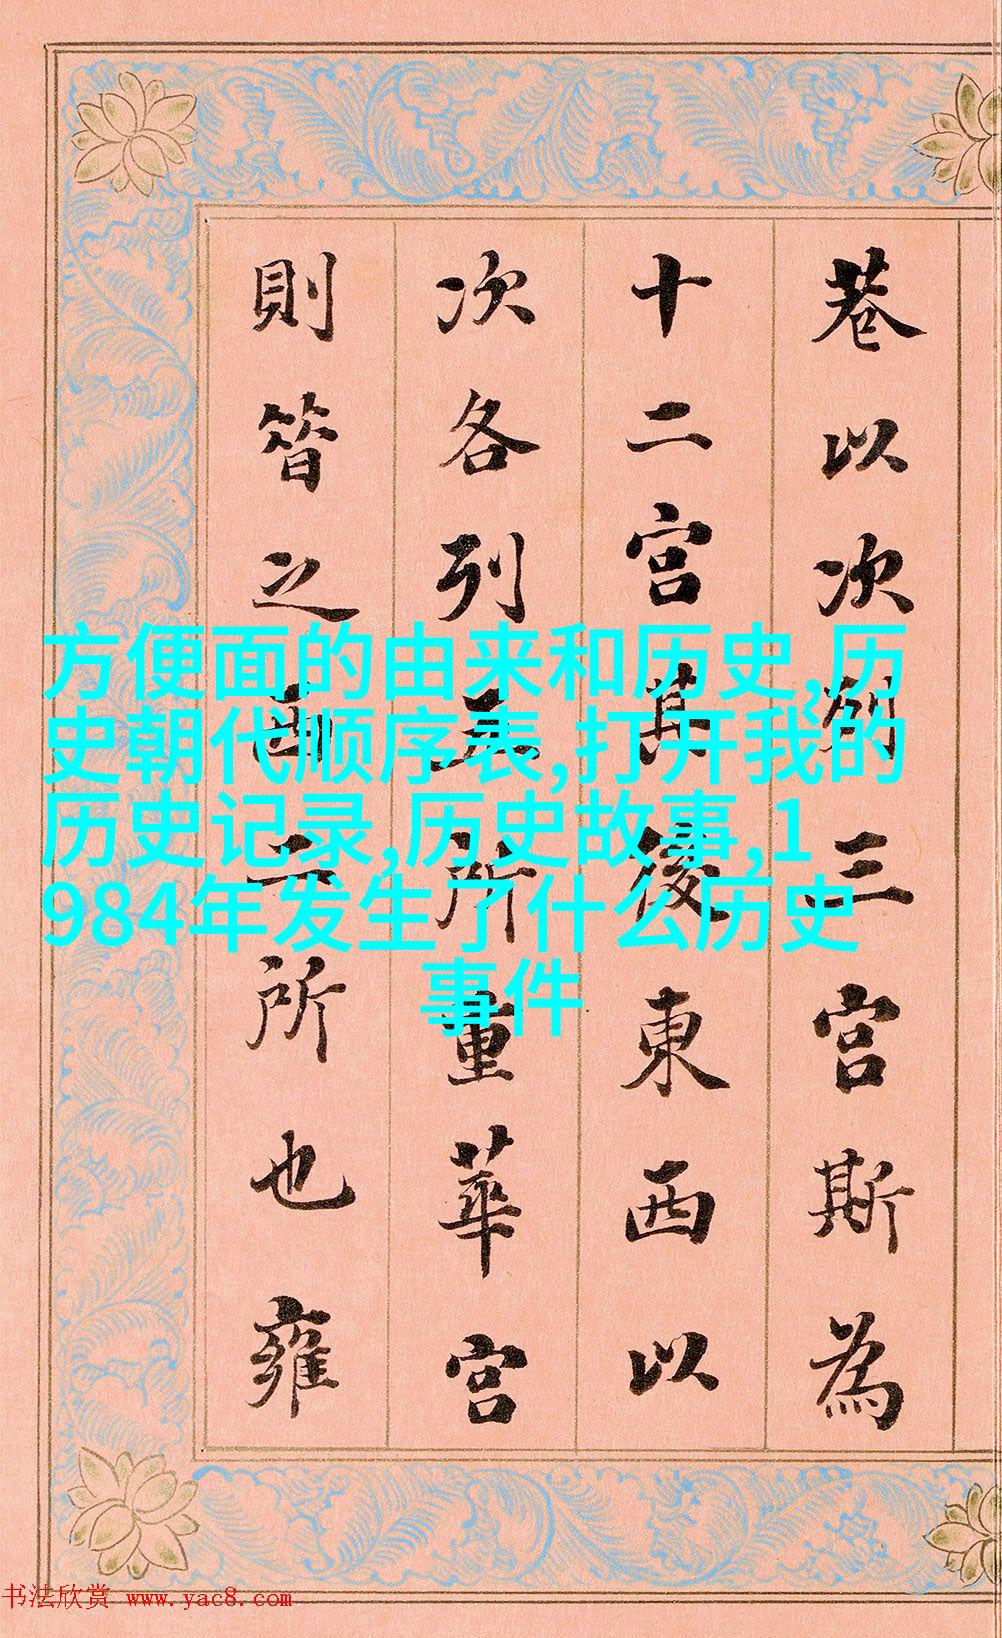 巷以次三宫斯為
十二宫其後東西以
次各列五所重華宫
則昔之西二所也雍
方便面的由来和历史,历
史朝代顺序表,打开我的
历史记录,历史故事,1
984年发生了什么历史
事件
书法欣赏 www.yac8.com